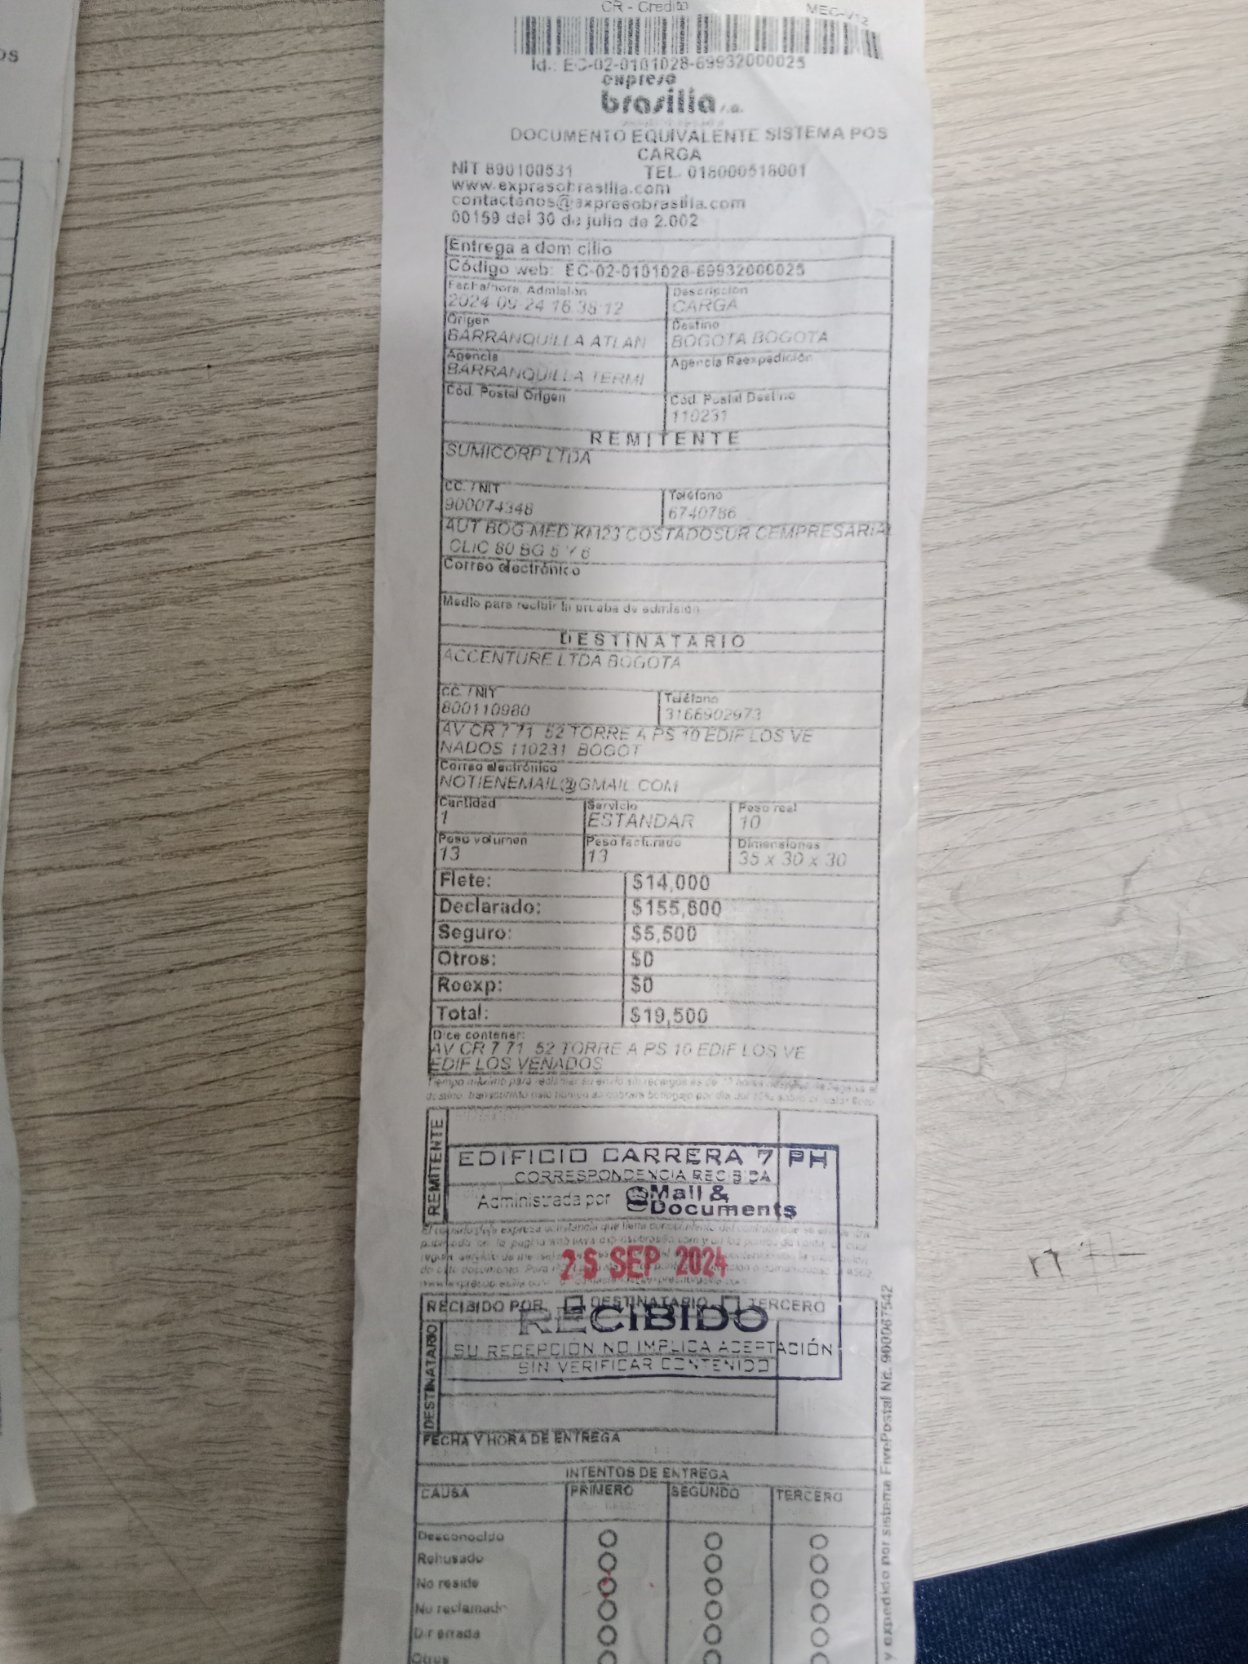 CR - Credito
Id.: EC-02-0101028-69932000025
expreso
brasilia s.a.
DOCUMENTO EQUIVALENTE SISTEMA POS
CARGA
NIT 890100531 TEL. 018000518001
www.expresobrasilia.com
contactenos@expresobrasilia.com
00159 del 30 de julio de 2.002
Entrega a domicilio
Código web: EC-02-0101028-69932000025
Fecha/hora Admisión Descripción
2024-09-24 16:38:12 CARGA
Origen Destino
BARRANQUILLA ATLAN BOGOTA BOGOTA
Agencia Agencia Reexpedición
BARRANQUILLA TERMI
Cód. Postal Origen Cód. Postal Destino
110231
REMITENTE
SUMICORP LTDA
CC. / NIT Teléfono
900074348 6740786
AUT BOG-MED KM23 COSTADOSUR CEMPRESARIA
CLIC 80 BG 5 Y 6
Correo electrónico
Medio para recibir la prueba de admisión
DESTINATARIO
ACCENTURE LTDA BOGOTA
CC. / NIT Teléfono
800110980 3166902973
AV CR 7 71 52 TORRE A PS 10 EDIF LOS VE
NADOS 110231 BOGOT
Correo electrónico
NOTIENEMAIL@GMAIL.COM
Cantidad Servicio Peso real
1 ESTANDAR 10
Peso volumen Peso facturado Dimensiones
13 13 35 x 30 x 30
Flete: $14,000
Declarado: $155,600
Seguro: $5,500
Otros: $0
Reexp: $0
Total: $19,500
Dice contener:
AV CR 7 71 52 TORRE A PS 10 EDIF LOS VE
EDIF LOS VENADOS
REMITENTE
EDIFICIO CARRERA 7 PH
CORRESPONDENCIA RECIBIDA
Administrada por Mail &
Documents
25 SEP 2024
RECIBIDO POR DESTINATARIO TERCERO
RECIBIDO
SU RECEPCIÓN NO IMPLICA ACEPTACIÓN
SIN VERIFICAR CONTENIDO
DESTINATARIO
FECHA Y HORA DE ENTREGA
INTENTOS DE ENTREGA
CAUSA PRIMERO SEGUNDO TERCERO
Desconocido
Rehusado
No reside
No reclamado
Dir errada
Otros
y expedido por sistema FivePostal Nit. 900067542